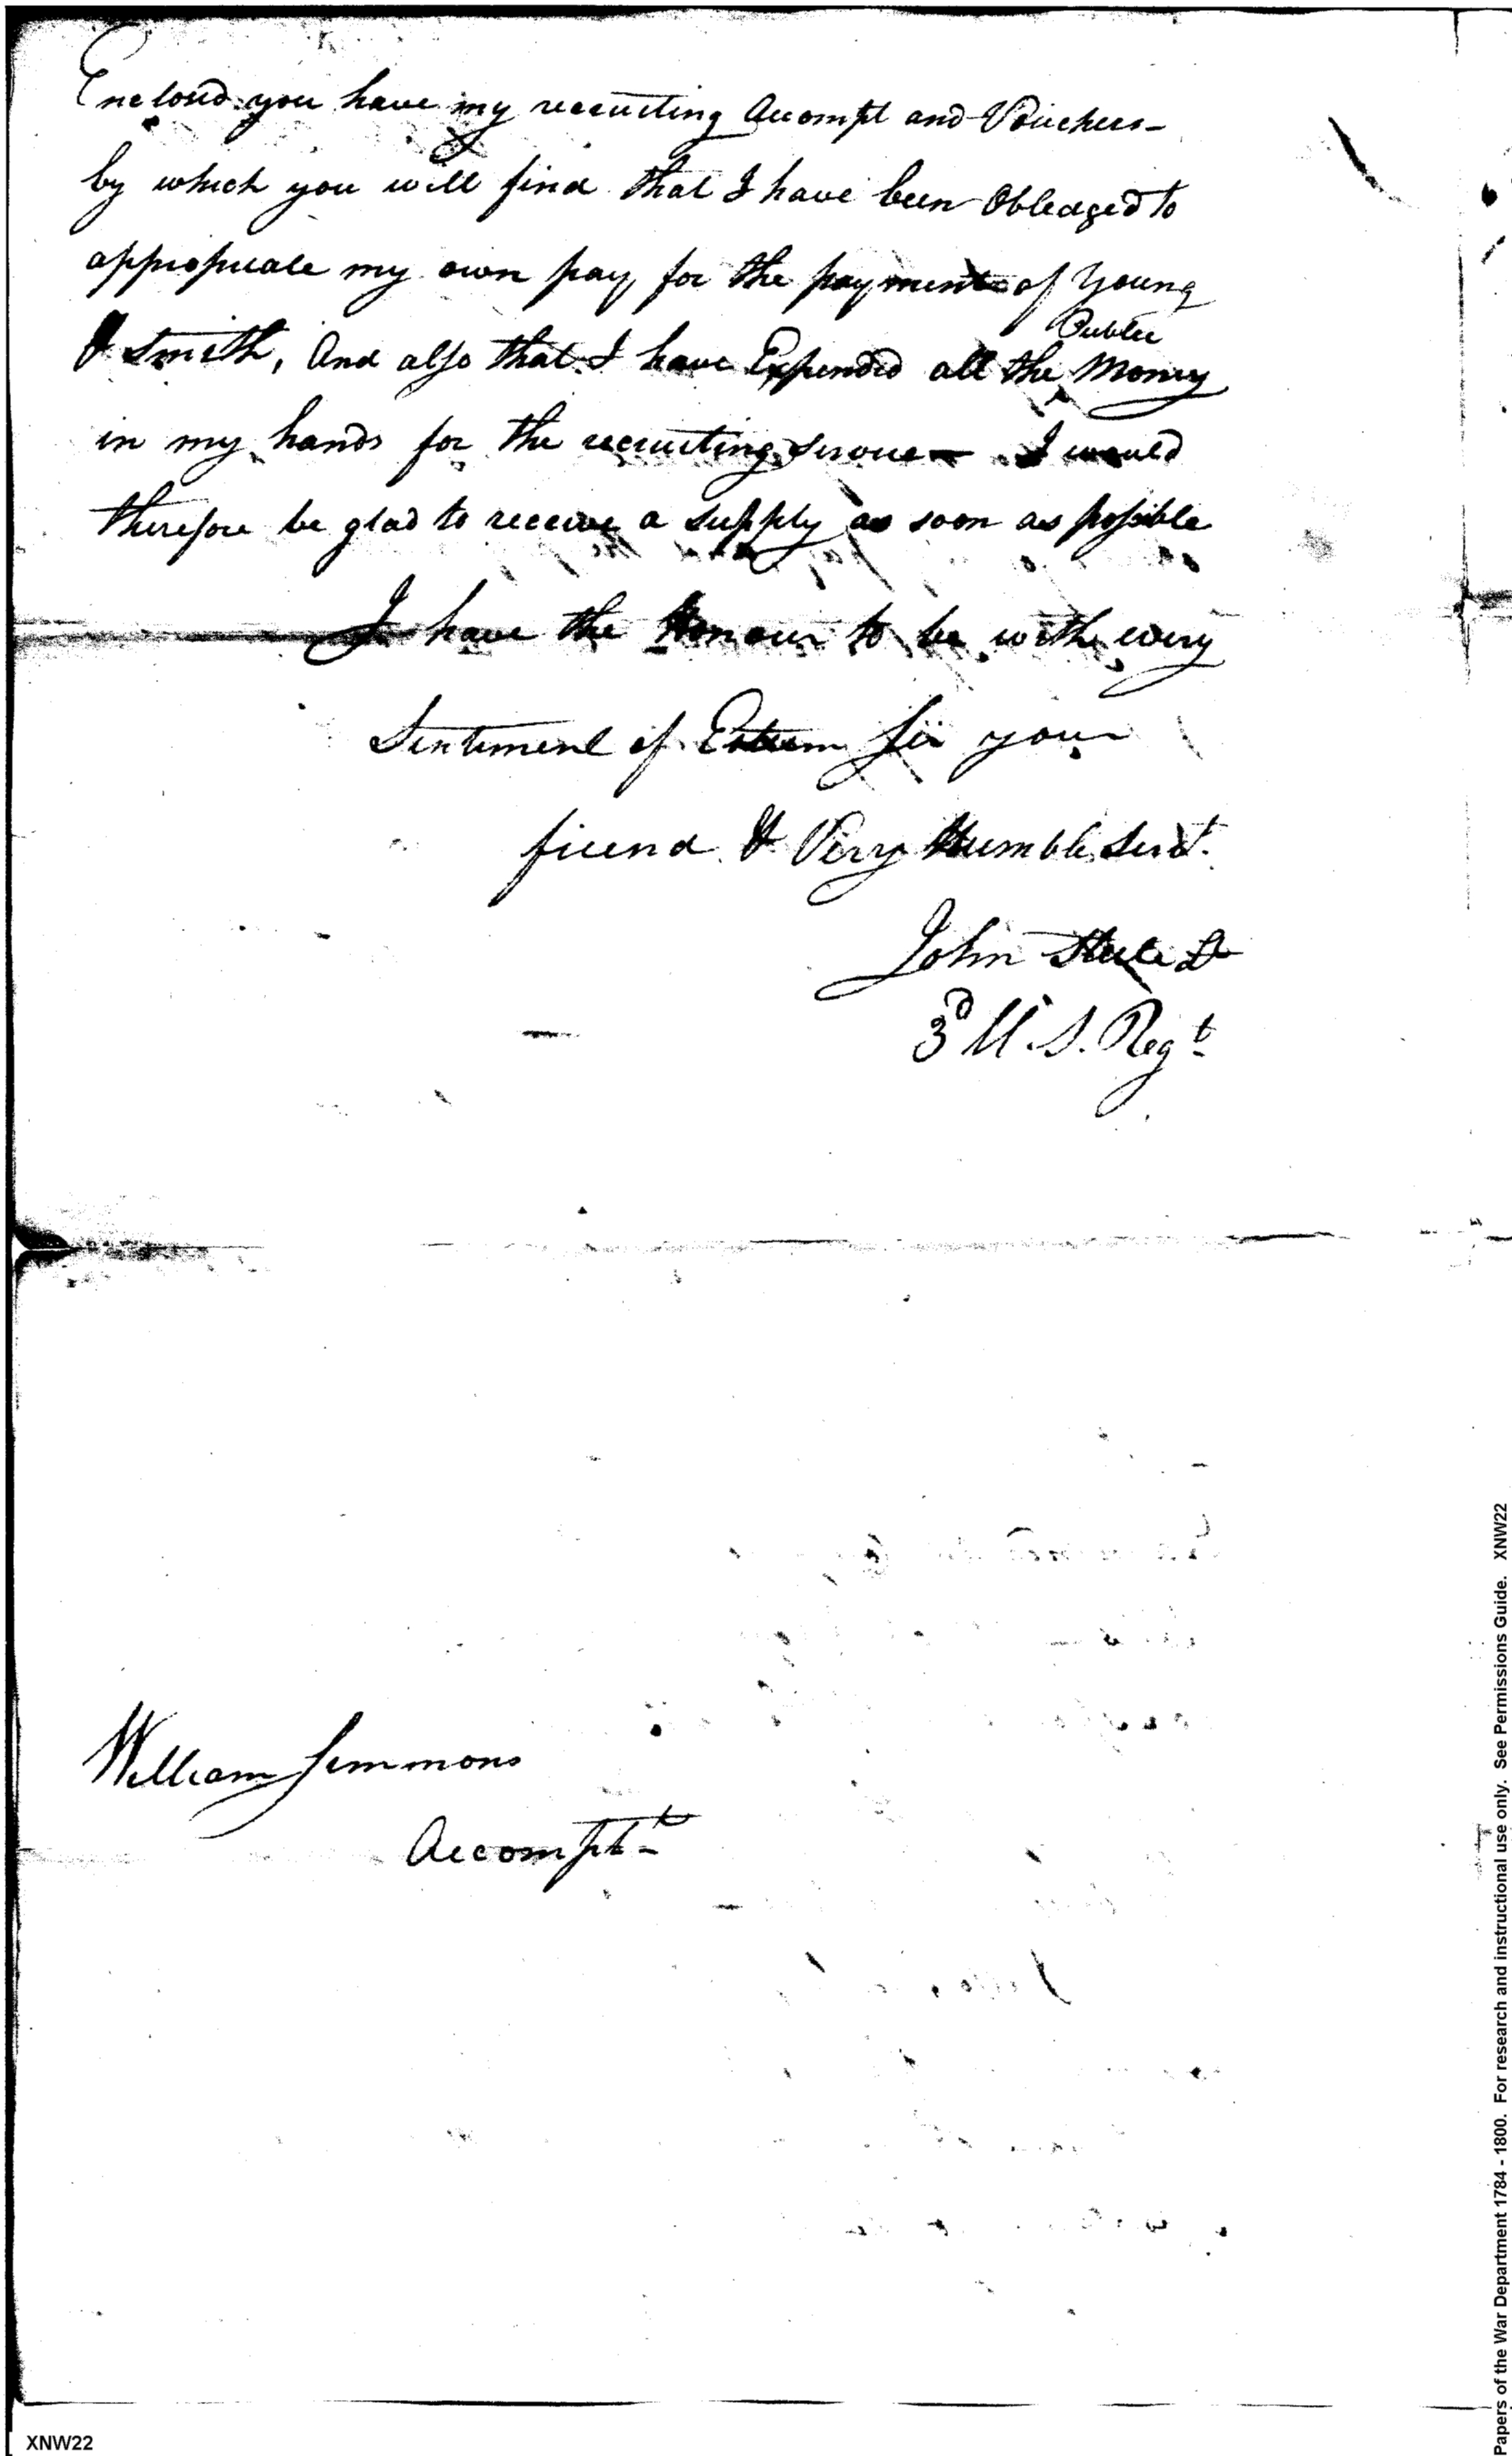 Enclosed you have my recruiting Accompt and Vouchers-
by which you will find that I have been Obledged to
appropriate my own pay, for the payment of Young
Public
& Smith, And also that I have Expended all the Money
in my hands for the recruiting service - I would
therefore be glad to receive a supply as soon as possible
I have the Honour to be with every
Sentiment of Esteem Sir your
friend & Very Humble Servt.
John Steele
3d U.S. Regt
William Simmons
Accomptt
XNW22
Papers of the War Department 1784 - 1800. For research and instructional use only. See Permissions Guide. XNW22